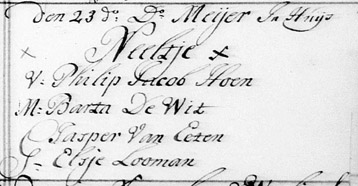 den 23 do. Do. Meijer In Huijs
× Neeltje ×
V: Philip Jacob Hoen
M: Barta De Wit
Casper Van Eeten
G. Elsje Looman